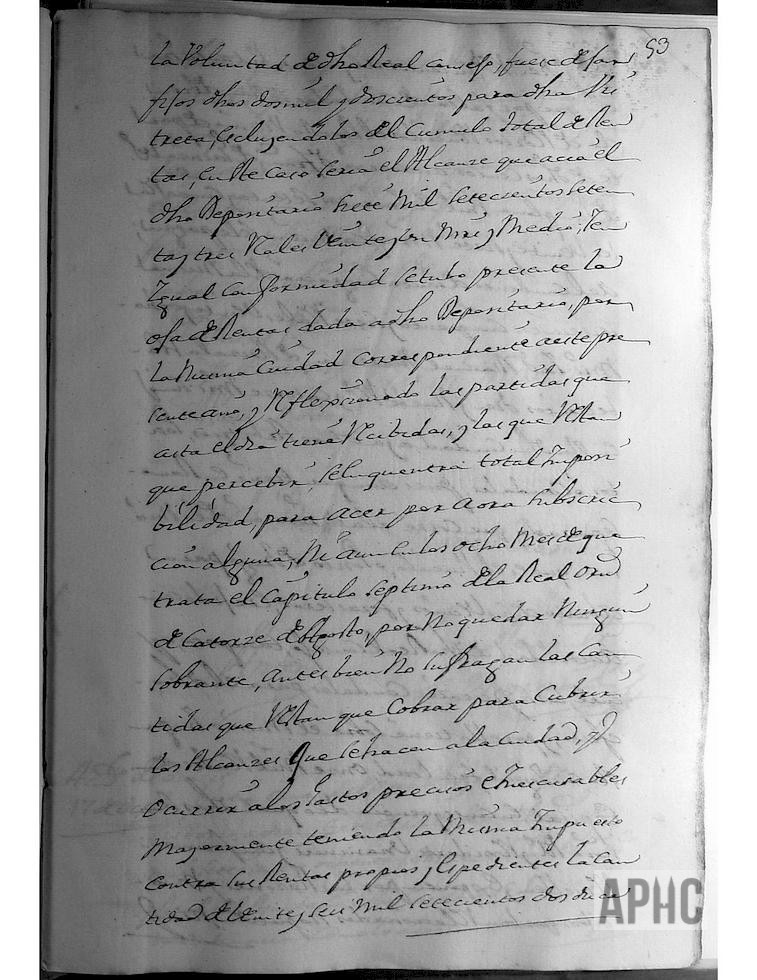 53
la Voluntad de dho Real Consejo, fuese de san
fhos dhos dosmil y doscientos para dha
treta, escluyendolos del Cumulo total de Ren
tas, en este Caso seria el Alcanze que acia el
dho Depositario siete Mil setecientos seten
tay tres Rales Veinteyun Mrs y Medio, Yen
Ygual Conformidad setubo presente la
oja de Rentas dada a dho Depositario, por
la Misma Ciudad Correspondiente aeste pre
sente año, y Reflexionado las partidas que
asta el dia tiene Recibidas, y las que Restan
que percebir, se encuentra total Ymposi
bilidad, para acer por aora subscrip
cion alguna, Ni aun en los ocho Mes de que
trata el Capitulo septimo de la Real Orn
de Catorze de Agosto, por No quedar Ningun
sobrante, antes bien No sufragan las Can
tidas que Restan que Cobrar para Cubrir
los Alcanzes Que se hacen a la Ciudad, y
Ocurrir a los Gastos precisos e Ynescusables
Mayormente teniendo la Misma Ympuesto
Contra sus Rentas propios y Espedientes la Can
tidad de Veinte y seis Mil setecientos dos diez
APHC